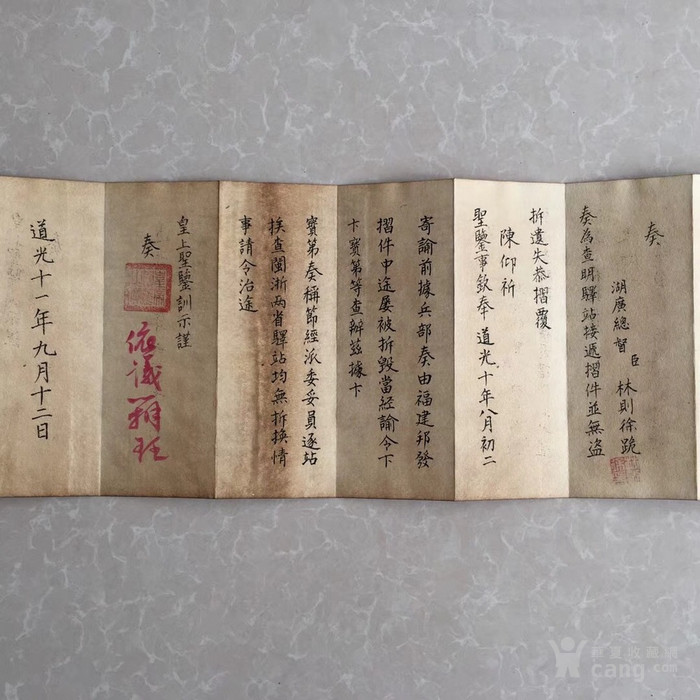 奏
湖廣總督 臣 林則徐跪
奏為查明驛站接遞摺件並無盜
拆遺失恭摺覆
陳仰祈
聖鑒事欽奉 道光十年八月初二
寄諭前據兵部奏由福建邦發
摺件中途屡被拆毀當経諭令卞
卞寳第等查辦茲據卞
寳第奏稱節經派委妥員逐站
挨查閩浙兩省驛站均無拆換情
事請令治途
皇上聖鑒訓示謹
奏
依議
道光十一年九月十二日
華夏收藏網
cang.com